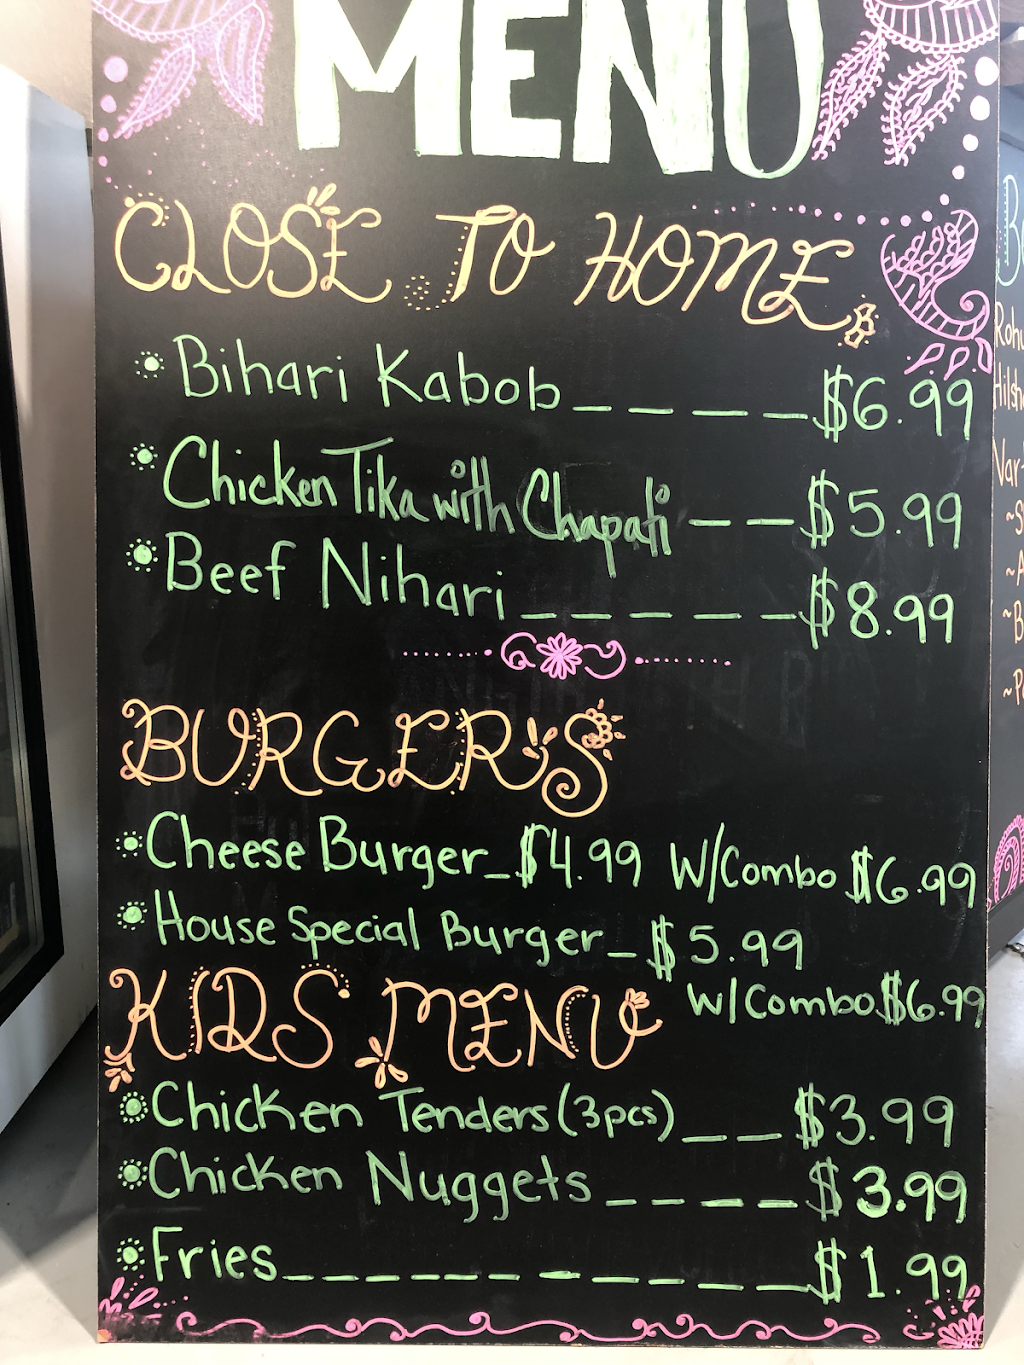 MENU
CLOSE TO HOME
Bihari Kabob _ _ _ _ _ $6.99
Chicken Tika with Chapati _ _ _ $5.99
Beef Nihari _ _ _ _ _ _ $8.99
BURGER'S
Cheese Burger _ $4.99 W/Combo $6.99
House Special Burger _ $5.99
W/Combo $6.99
KIDS MENU
Chicken Tenders (3pcs) _ _ $3.99
Chicken Nuggets _ _ _ _ $3.99
Fries _ _ _ _ _ _ _ _ _ _ _ $1.99